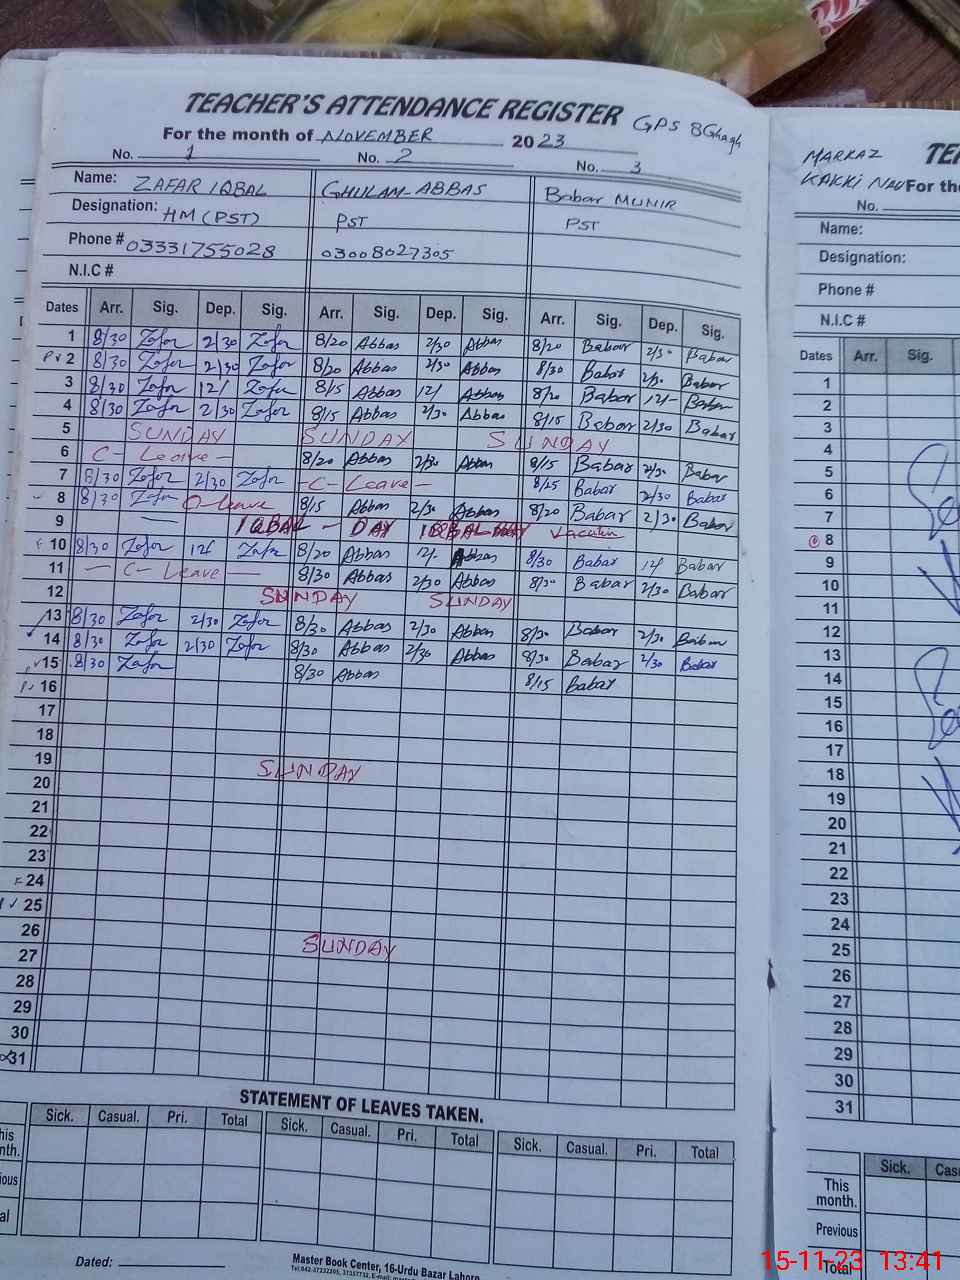 TEACHER'S ATTENDANCE REGISTER GPS 8Ghagh
For the month of NOVEMBER 2023
No. 1 No. 2 No. 3
Name: ZAFAR IQBAL GHULAM ABBAS Babar MUNIR
Designation: HM (PST) PST PST
Phone # 03331755028 03008027305
N.I.C #
Dates Arr. Sig. Dep. Sig. Arr. Sig. Dep. Sig. Arr. Sig. Dep. Sig.
1 8/30 Zafar 2/30 Zafar 8/20 Abbas 2/30 Abbas 8/20 Babar 2/30 Babar
2 8/30 Zafar 2/30 Zafar 8/20 Abbas 2/30 Abbas 8/30 Babar 2/30 Babar
3 8/30 Zafar 12/ Zafar 8/15 Abbas 12/ Abbas 8/20 Babar 12/- Babar
4 8/30 Zafar 2/30 Zafar 8/15 Abbas 2/30 Abbas 8/15 Babar 2/30 Babar
5 SUNDAY SUNDAY SUNDAY
6 C- Leave - 8/20 Abbas 2/30 Abbas 8/15 Babar 2/30 Babar
7 8/30 Zafar 2/30 Zafar -C- Leave- 8/25 Babar 2/30 Babar
8 8/30 Zafar O-leave 8/15 Abbas 2/30 Abbas 8/20 Babar 2/30 Babar
9 IQBAL - DAY IQBAL DAY
10 8/30 Zafar 12/ Zafar 8/20 Abbas 12/- Abbas 8/30 Babar 12/ Babar
11 - C- Leave - 8/30 Abbas 2/30 Abbas 8/30 Babar 2/30 Babar
12 SUNDAY SUNDAY
13 8/30 Zafar 2/30 Zafar 8/30 Abbas 2/30 Abbas 8/30 Babar 2/30 Babar
14 8/30 Zafar 2/30 Zafar 8/30 Abbas 2/30 Abbas 8/30 Babar 2/30 Babar
15 8/30 Zafar 8/30 Abbas 8/15 Babar
16
17
18
19 SUNDAY
20
21
22
23
24
25
26 SUNDAY
27
28
29
30
31
STATEMENT OF LEAVES TAKEN.
Sick. Casual. Pri. Total Sick. Casual. Pri. Total Sick. Casual. Pri. Total
Dated:
Master Book Center, 16-Urdu Bazar Lahore
MARKAZ
KAKKI NAU
For the
No.
Name:
Designation:
Phone #
N.I.C #
Dates Arr. Sig.
1
2
3
4
5
6
7
8
9
10
11
12
13
14
15
16
17
18
19
20
21
22
23
24
25
26
27
28
29
30
31
Sick.
This month.
Previous
Total
15-11-23 13:41